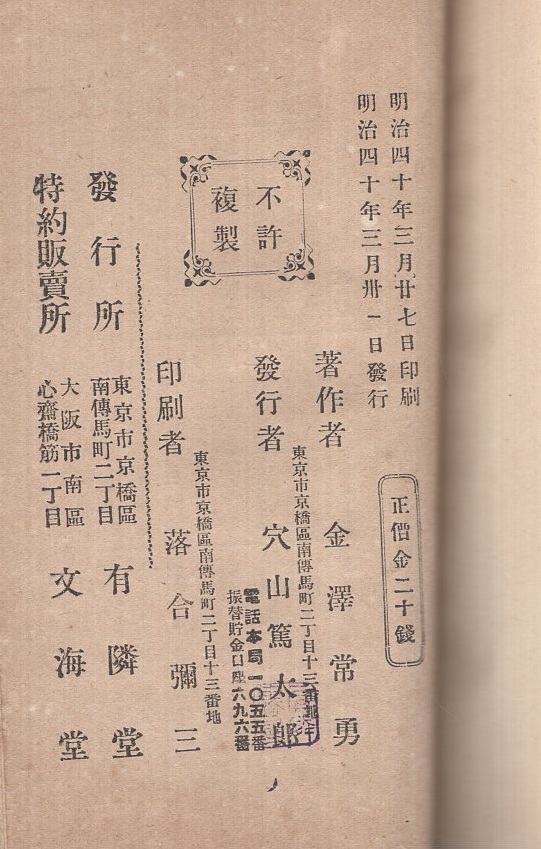 明治四十年三月廿七日印刷
明治四十年三月卅一日發行
正價金二十錢
不許
複製
著作者 金澤常勇
東京市京橋區南傳馬町二丁目十三番地
發行者 穴山篤太郎
電話本局一〇五五番
振替貯金口座六九六番
東京市京橋區南傳馬町二丁目十三番地
印刷者 落合彌三
東京市京橋區
南傳馬町二丁目
發行所 有隣堂
大阪市南區
心齋橋筋二丁目
特約販賣所 文海堂